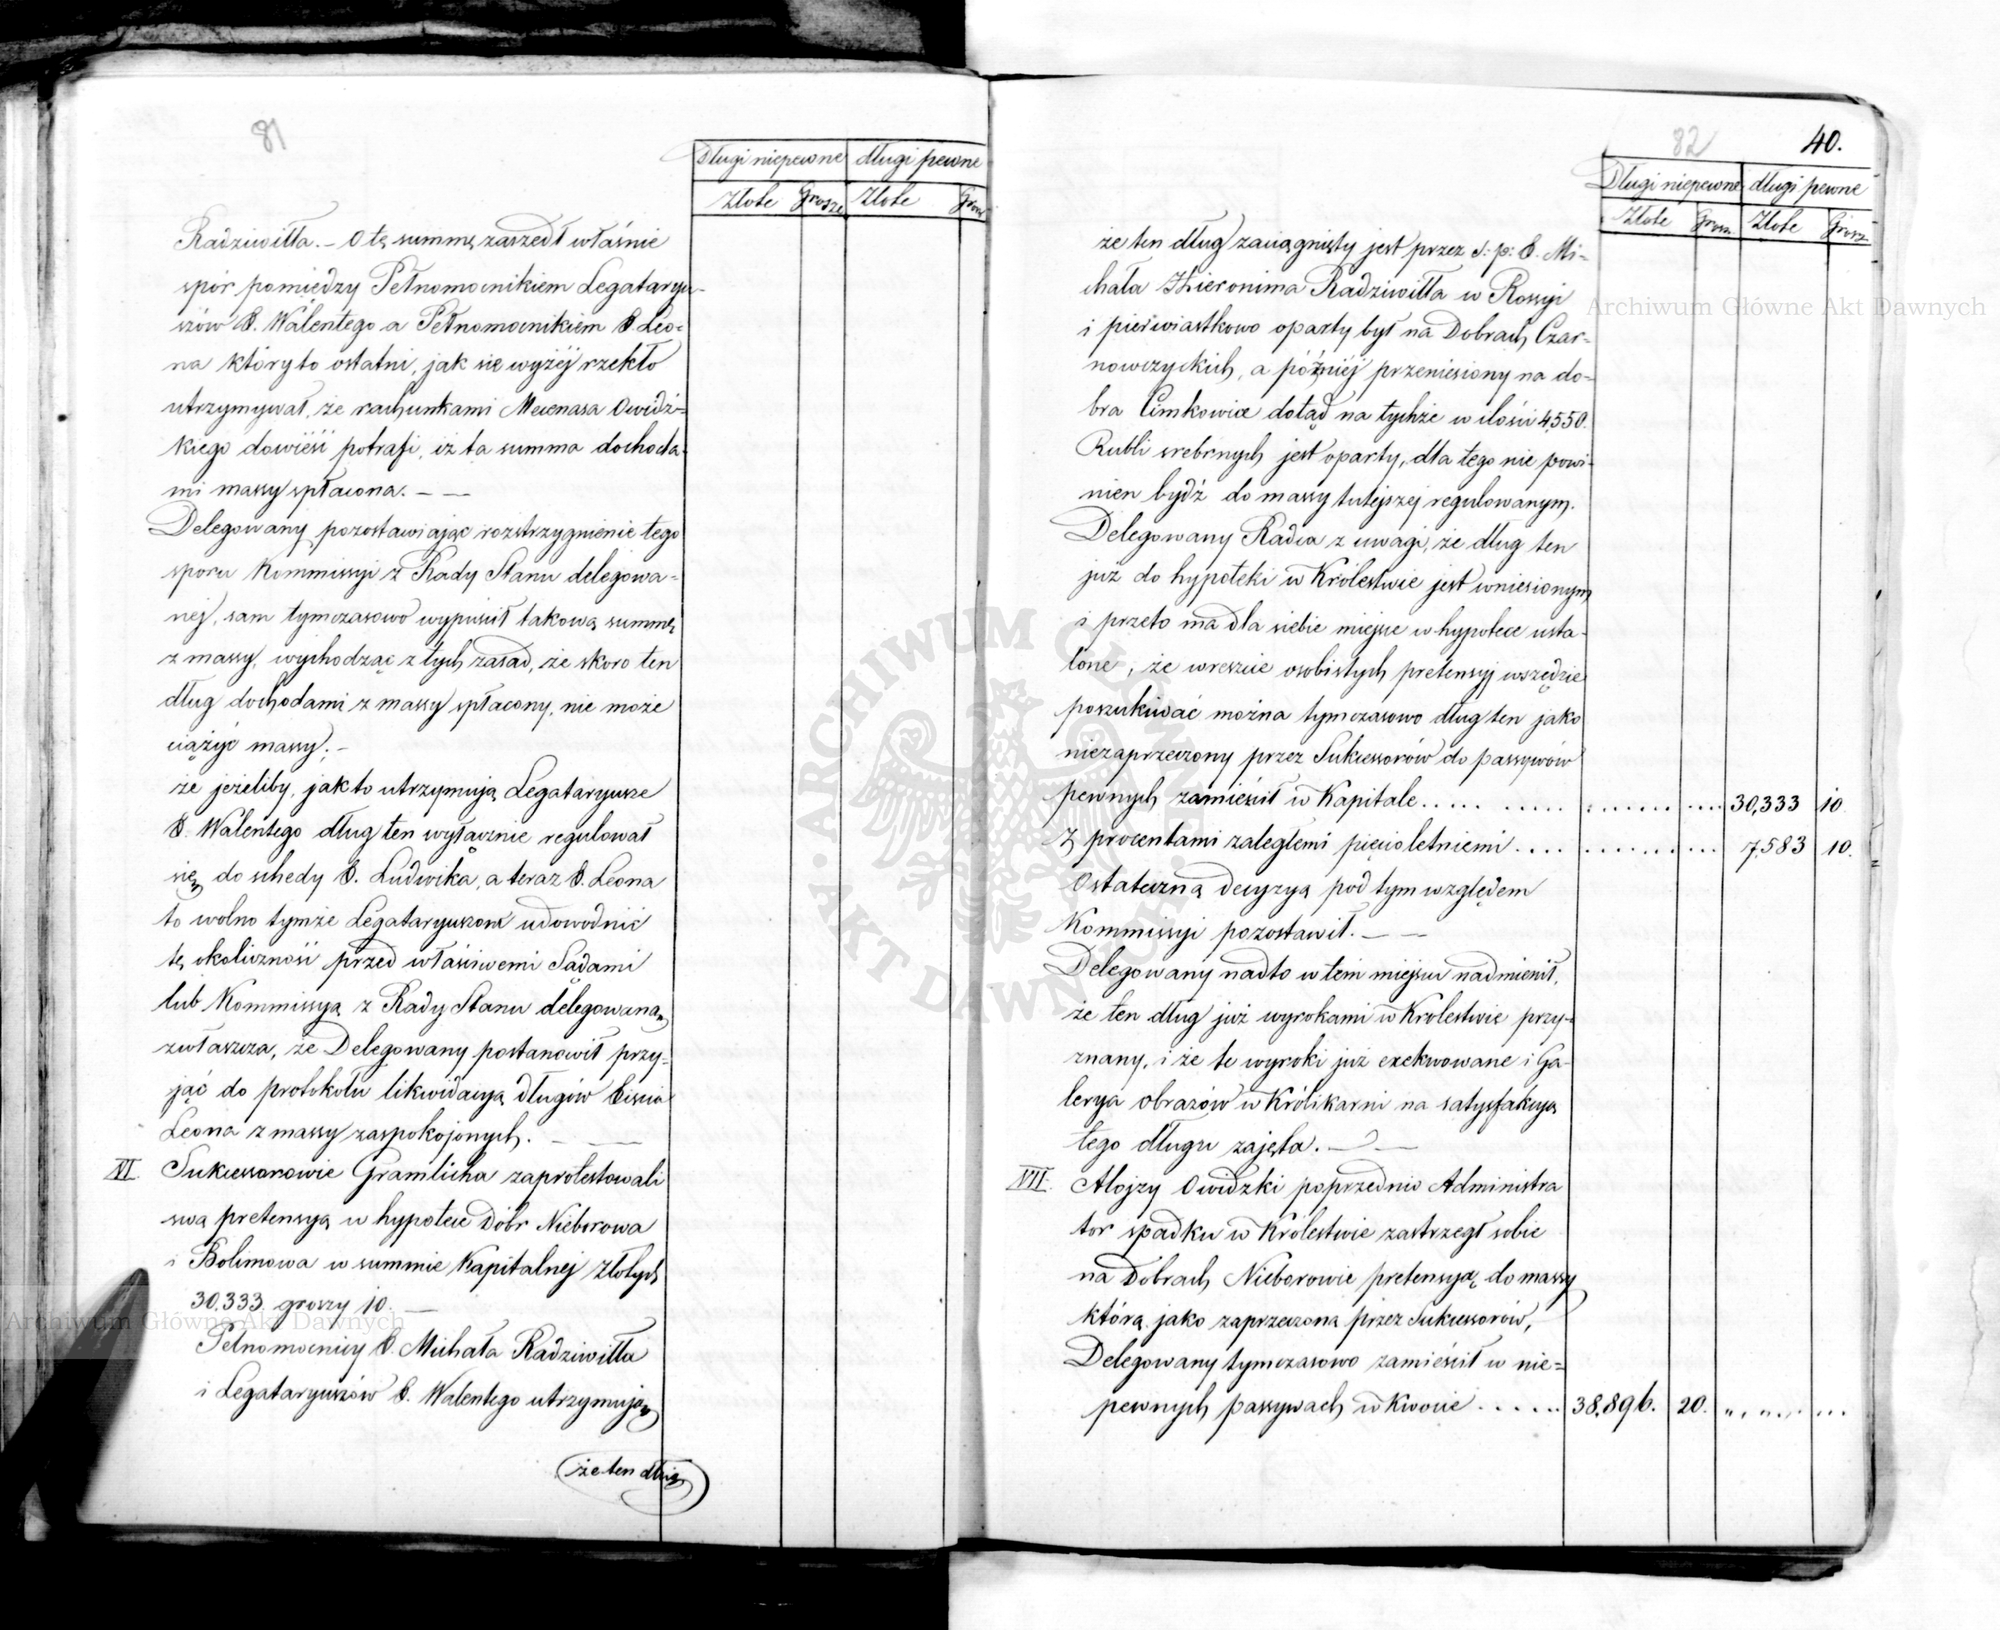 81
Długi niepewne długi pewne
Złote Grosze Złote Grosz
Radziwiłła. – O tę summę zaszedł właśnie
spór pomiędzy Pełnomocnikiem Legataryu-
szów X. Walentego a Pełnomocnikiem X Leo-
na który to ostatni, jak się wyżéj rzekło
utrzymywał, że rachunkami Mecenasa Owidz-
kiego dowieść potrafi, iż ta summa dochoda-
mi massy spłacona. – —
Delegowany pozostawiając rozstrzygnienie tego
sporu Kommissyi z Rady Stanu delegowa-
néj, sam tymczasowo wypuścił takową summę
z massy, wychodząc z tych zasad, że skoro ten
dług dochodami z massy spłacony, nie może
ciążyć massy. –
że jeżeliby, jak to utrzymują Legataryusze
X. Walentego dług ten wyłącznie regulował
się do schedy X. Ludwika, a teraz X. Leona
to wolno tymże Legataryuszom udowodnić
tę okoliczność przed właściwemi Sądami
lub Kommissyą z Rady Stanu delegowaną
zwłaszcza, że Delegowany postanowił przy-
jąć do protokołu likwidacyą długów Xięcia
Leona z massy zaspokojonych. — —
XI. Sukcessorowie Gramlicha zaprotestowali
swą pretensyą w hypotece Dóbr Nieborowa
i Bolimowa w summie Kapitalnéj Złotych
30,333 groszy 10. —
Pełnomocnicy X. Michała Radziwiłła
i Legataryuszów X. Walentego utrzymują
że ten dług
82 40.
Długi niepewne długi pewne
Złote Grosz. Złote Grosz
że ten dług zaciągnięty jest przez ś: p: X. Mi-
chała Hieronima Radziwiłła w Rossyi
i pierwiastkowo oparty był na Dobrach Czar-
nowczyckich, a późniéj przeniesiony na do-
bra Cimkowice dotąd na tychże w ilości 4,550.
Rubli srebrnych jest oparty, dla tego nie powi-
nien bydź do massy tutejszéj regulowanym.
Delegowany Radca z uwagi, że dług ten
już do hypoteki w Królestwie jest wniesionym
i przeto ma dla siebie miejsce w hypotece usta-
lone, że wreszcie osobistych pretensyj wszędzie
poszukiwać można tymczasowo dług ten jako
niezaprzeczony przez Sukcessorów do passywów
pewnych zamieścił w Kapitale . . . . . . . . . . 30,333 10
Z procentami zaległemi pięcioletniemi . . . . . . . . . . 7,583 10.
Ostateczną decyzyą pod tym względem
Kommissyi pozostawił. — —
Delegowany nadto w tém miejscu nadmienił,
że ten dług już wyrokami w Królestwie przy-
znany, i że te wyroki już exekwowane i Ga-
lerya obrazów w Królikarni na satysfakcyą
tego długu zajęta. — —
XII. Alojzy Owidzki poprzednio Administra
tor spadku w Królestwie zastrzegł sobie
na Dobrach Nieborowie pretensyą do massy
którą jako zaprzeczoną przez Sukcessorów,
Delegowany tymczasowo zamieścił w nie-
pewnych passywach w kwocie . . . . . 38,896. 20. „ . „ . . . . . .
Archiwum Główne Akt Dawnych
Archiwum Główne Akt Dawnych
ARCHIWUM GŁÓWNE AKT DAWNYCH